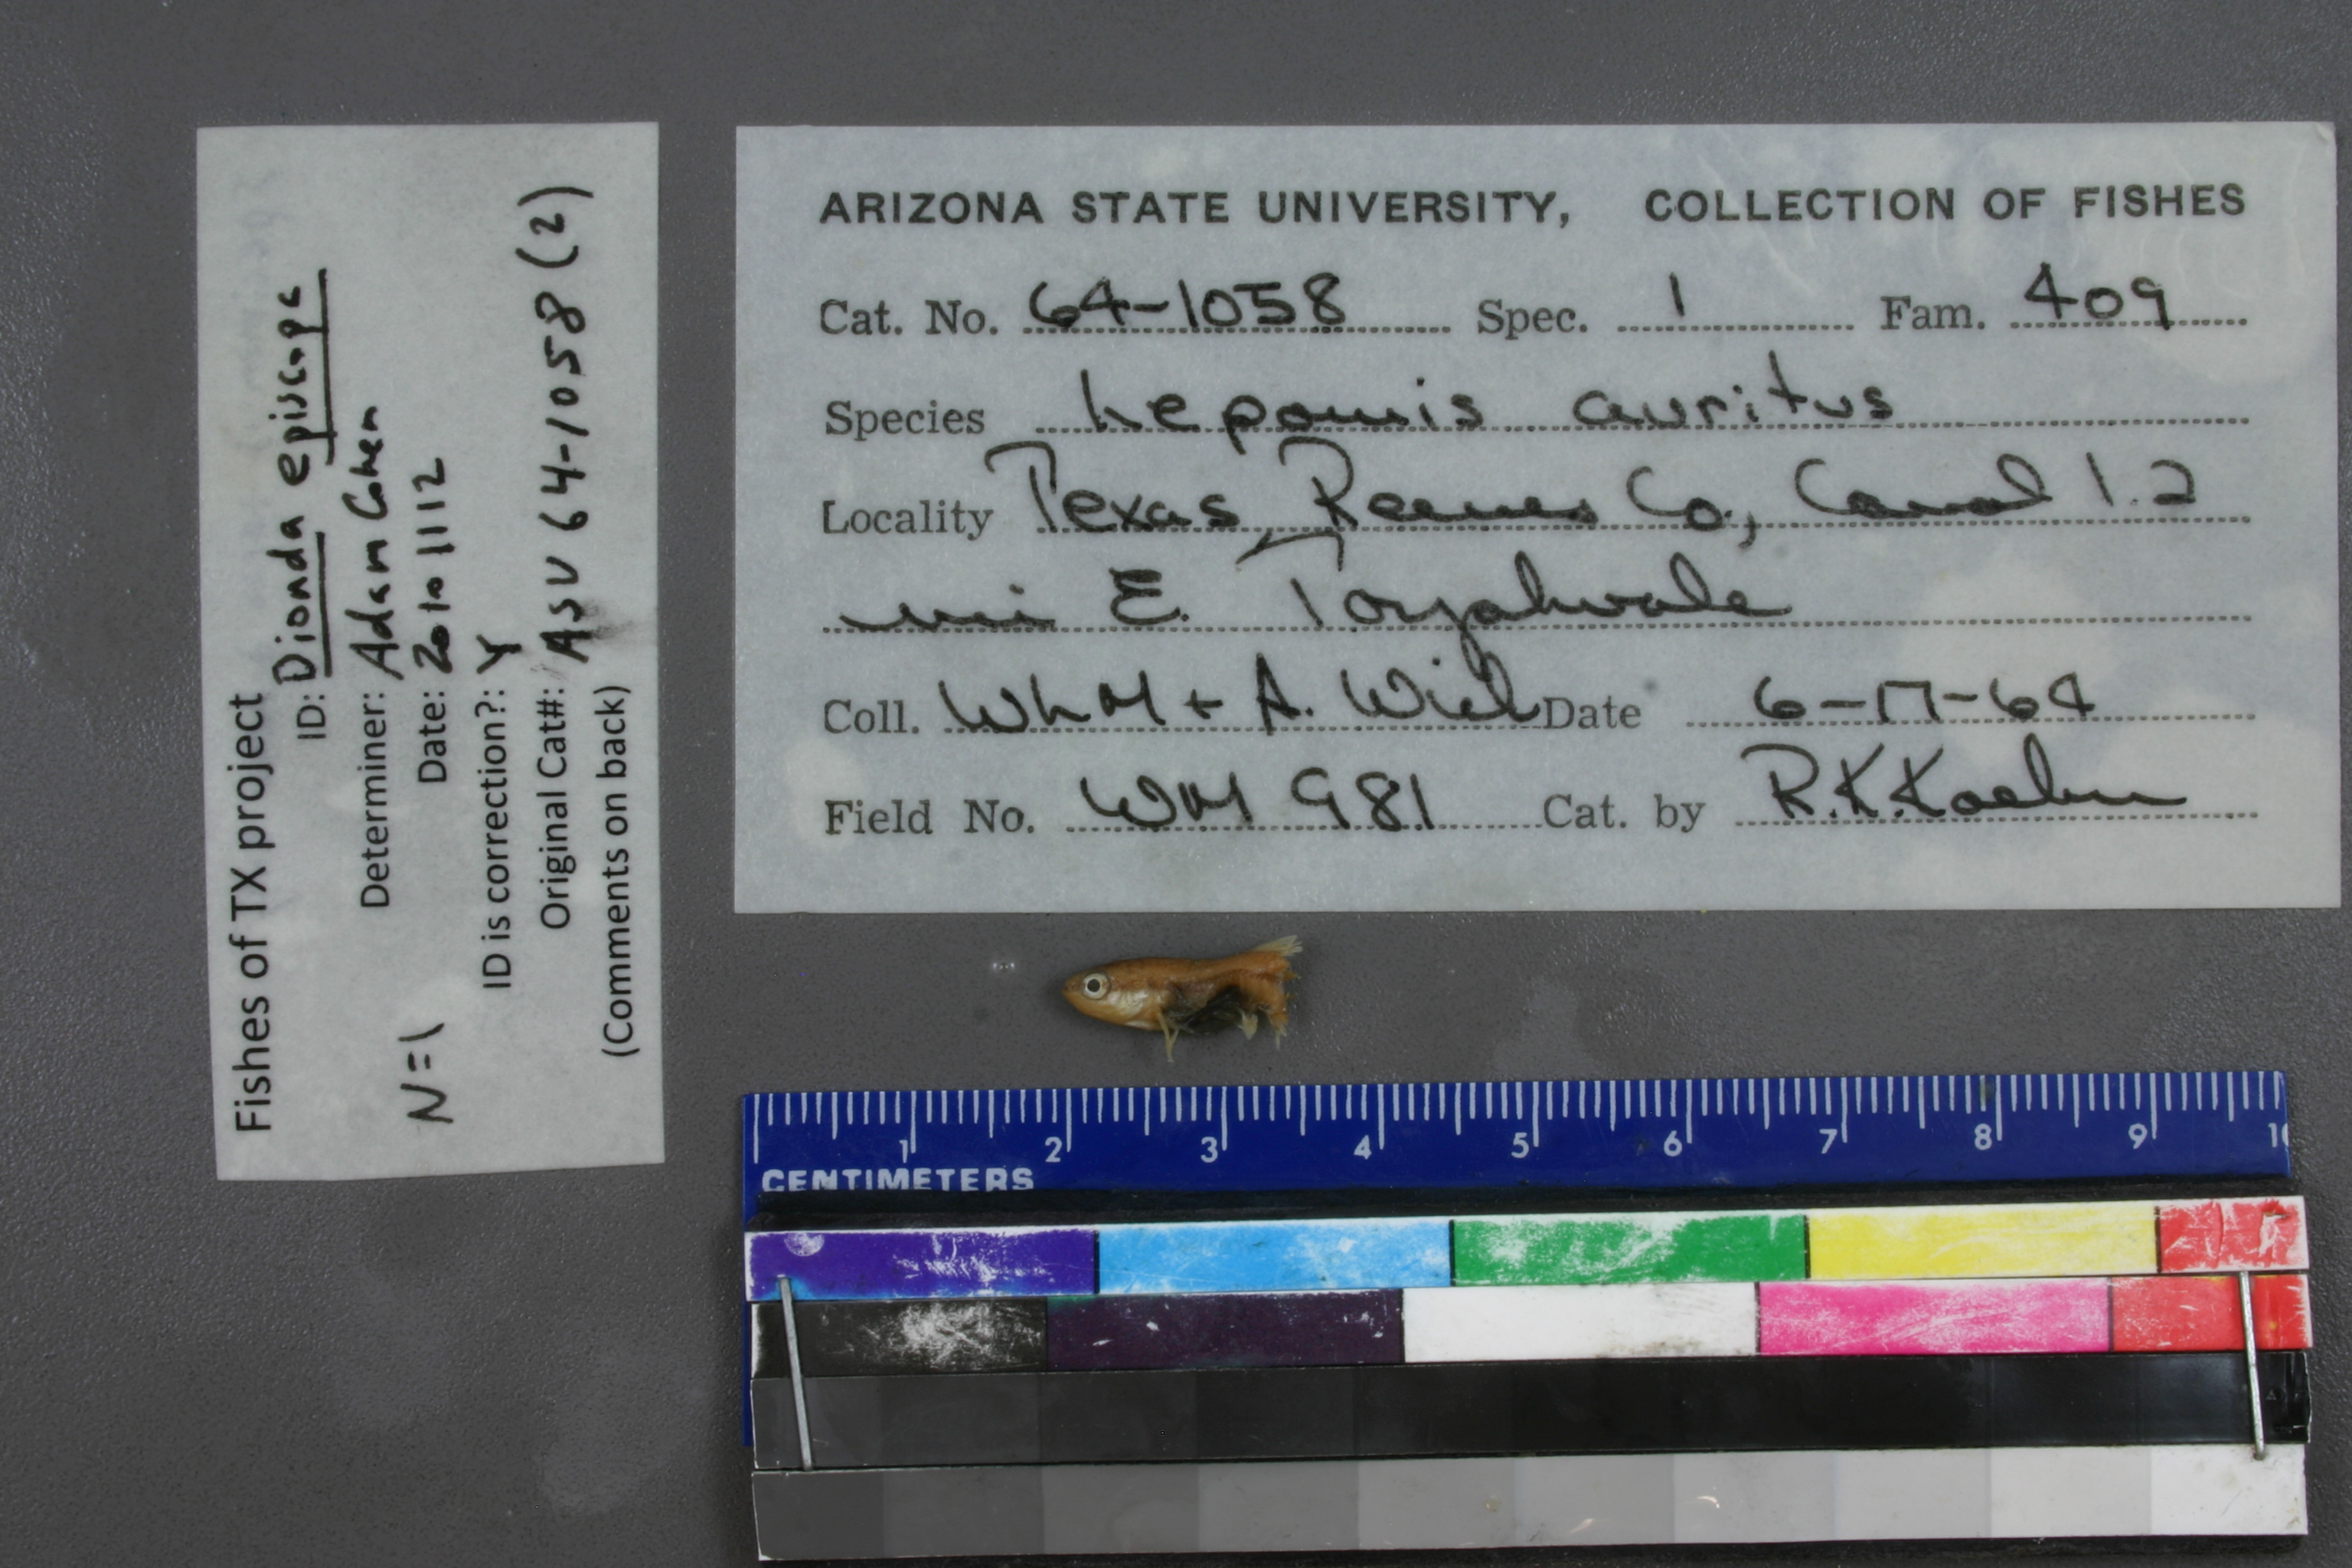 Fishes of TX project
ID: Dionda episcopa
Determiner: Adam Cohen
Date: 20101112
N=1
ID is correction?: Y
Original Cat#: ASU 64-1058 (2)
(Comments on back)
ARIZONA STATE UNIVERSITY, COLLECTION OF FISHES
Cat. No. 64-1058 Spec. 1 Fam. 409
Species Lepomis auritus
Locality Texas Reeves Co, Canal 1.2
mi E. Toyahvale
Coll. WLM + A. Wiel Date 6-17-64
Field No. WM 981 Cat. by R.K.Koehn
1 2 3 4 5 6 7 8 9 10
CENTIMETERS